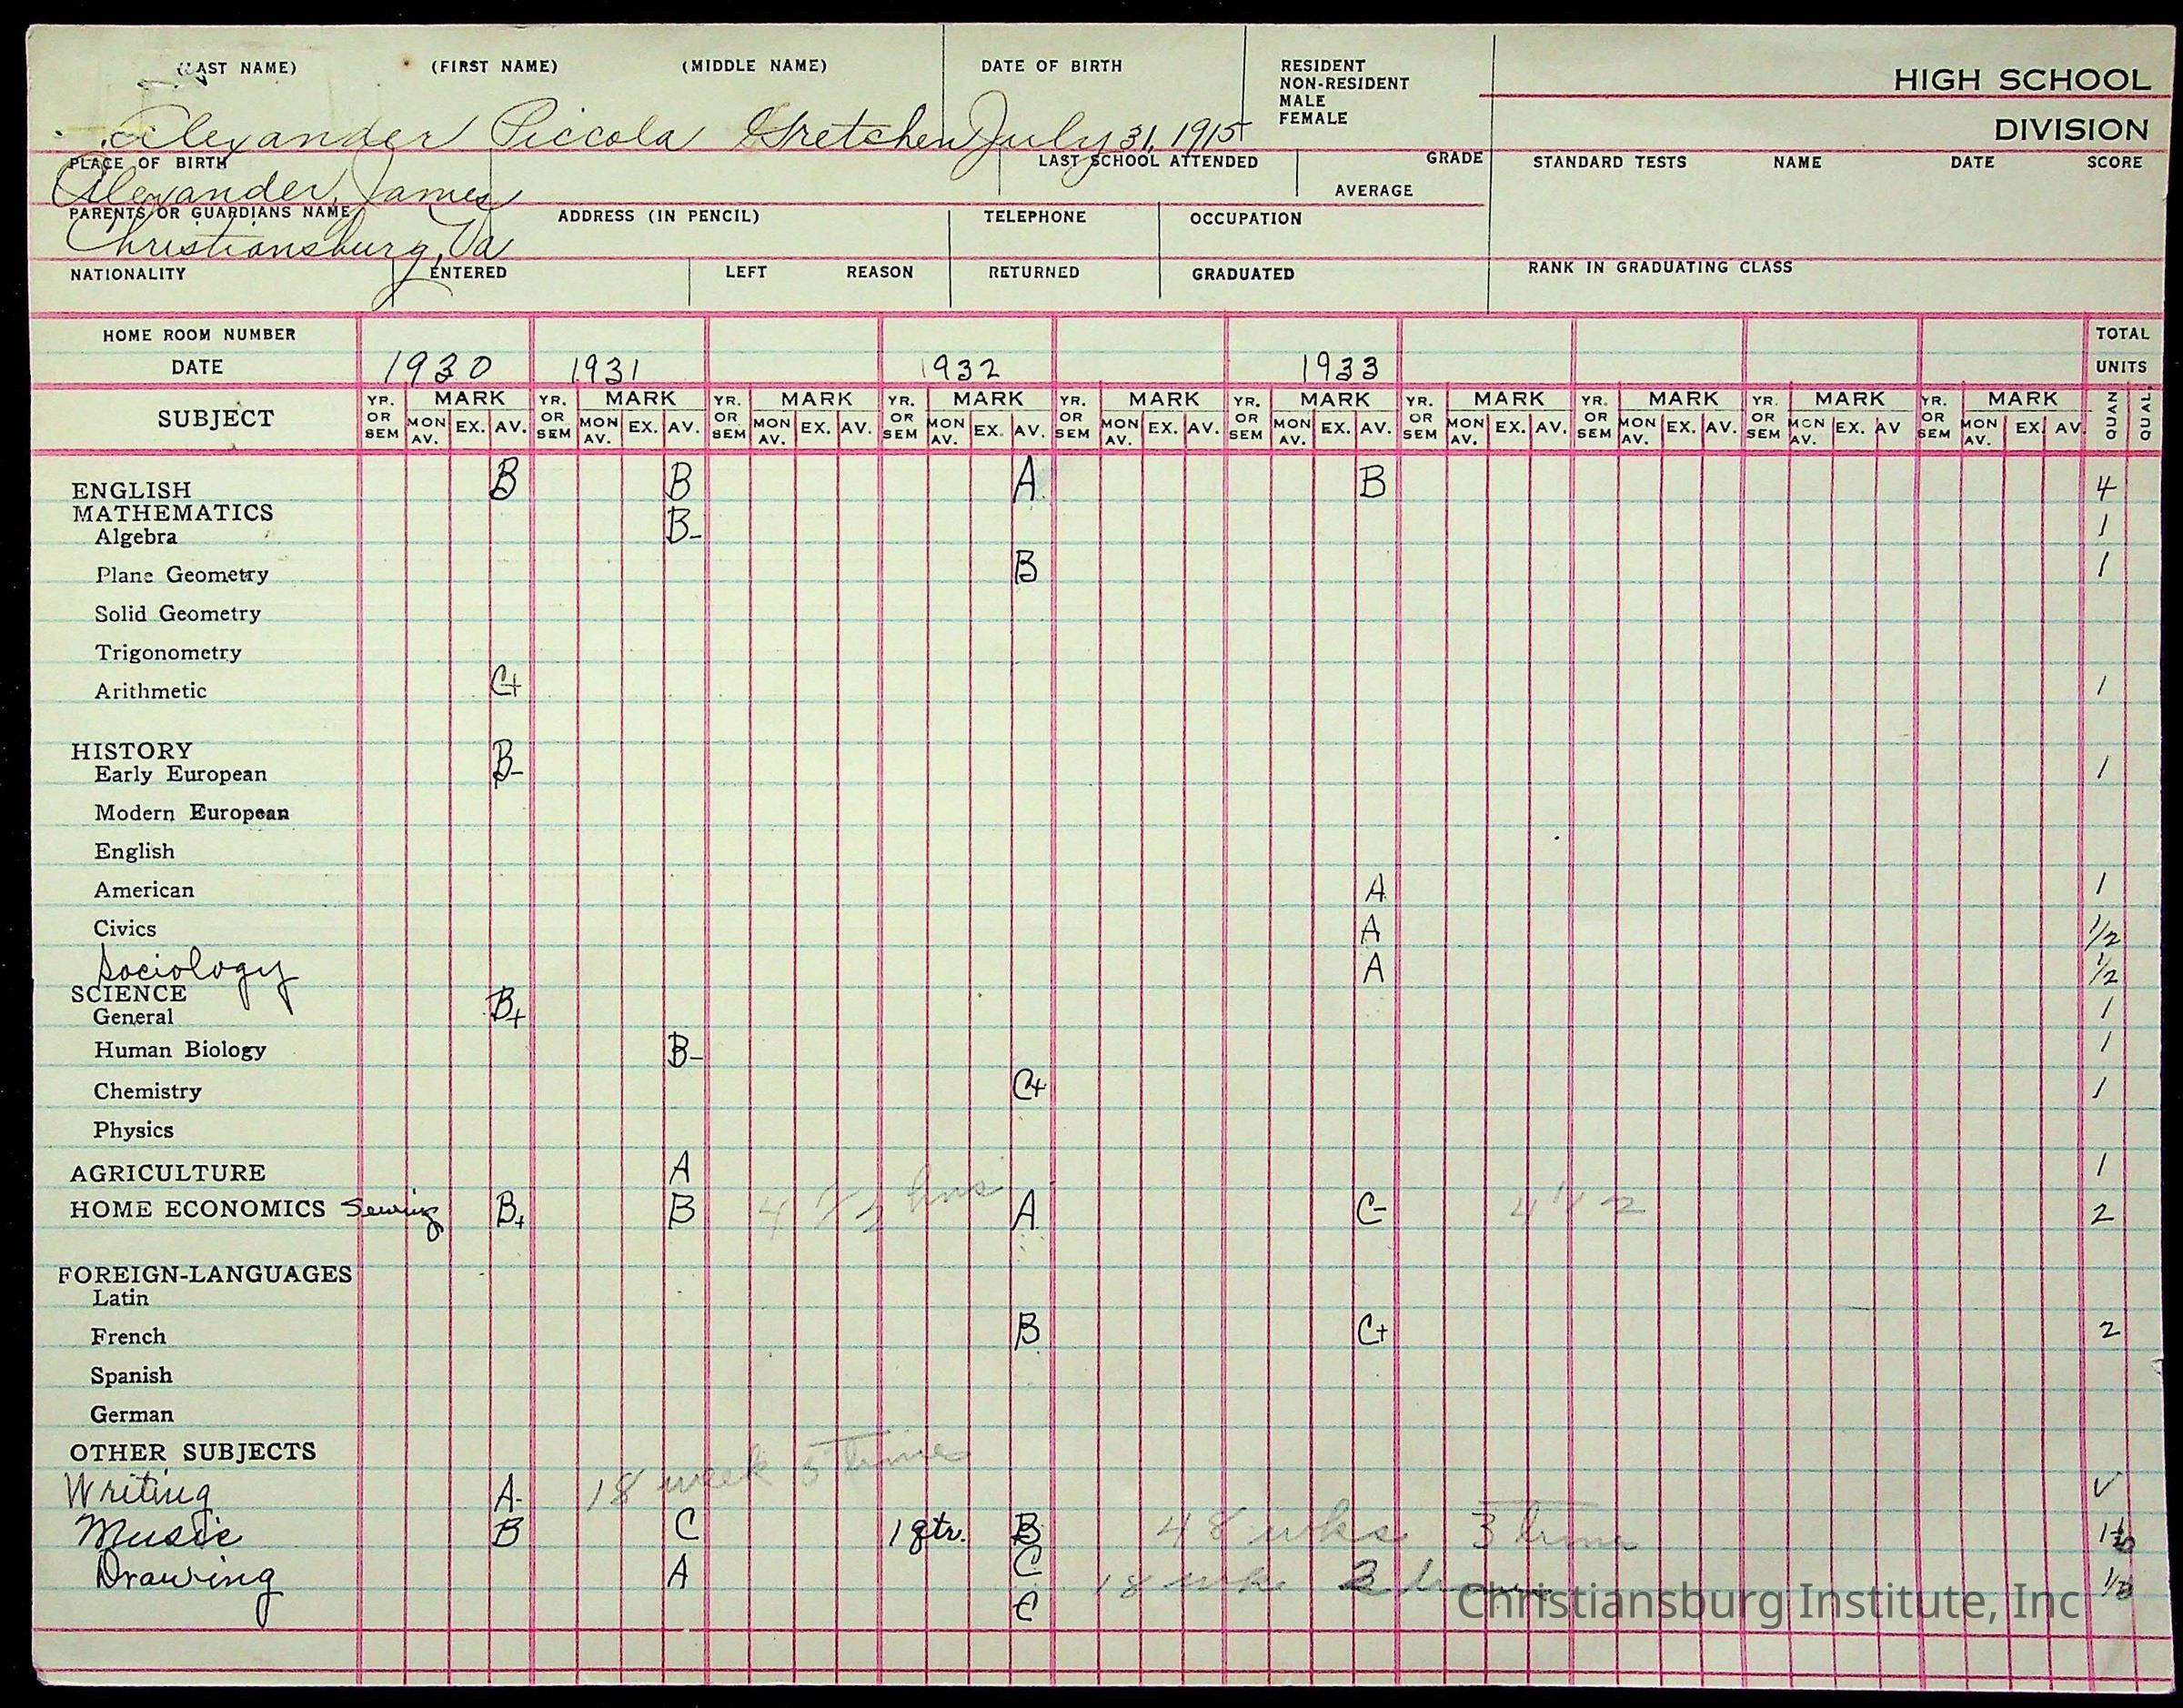 (LAST NAME) (FIRST NAME) (MIDDLE NAME) DATE OF BIRTH RESIDENT HIGH SCHOOL
NON-RESIDENT
MALE
FEMALE DIVISION
Alexander Piccola Gretchen July 31, 1915
PLACE OF BIRTH LAST SCHOOL ATTENDED GRADE STANDARD TESTS NAME DATE SCORE
Alexander, James AVERAGE
PARENTS OR GUARDIANS NAME ADDRESS (IN PENCIL) TELEPHONE OCCUPATION
Christiansburg, Va
NATIONALITY ENTERED LEFT REASON RETURNED GRADUATED RANK IN GRADUATING CLASS
HOME ROOM NUMBER TOTAL
DATE 1930 1931 1932 1933 UNITS
SUBJECT YR. OR SEM MARK MON AV. EX. AV. YR. OR SEM MARK MON AV. EX. AV. YR. OR SEM MARK MON AV. EX. AV. YR. OR SEM MARK MON AV. EX. AV. YR. OR SEM MARK MON AV. EX. AV. YR. OR SEM MARK MON AV. EX. AV. YR. OR SEM MARK MON AV. EX. AV. YR. OR SEM MARK MON AV. EX. AV. YR. OR SEM MARK MON AV. EX. AV YR. OR SEM MARK MON AV. EX. AV. QUAN QUAL.
ENGLISH B B A B 4
MATHEMATICS
Algebra B- 1
Plane Geometry B 1
Solid Geometry
Trigonometry
Arithmetic C+ 1
HISTORY
Early European B- 1
Modern European
English
American A 1
Civics A 1/2
Sociology A 1/2
SCIENCE
General B+ 1
Human Biology B- 1
Chemistry C+ 1
Physics
AGRICULTURE A 1
HOME ECONOMICS Sewing B+ B 4 1/2 hrs A C- 4 1/2 2
FOREIGN-LANGUAGES
Latin
French B C+ 2
Spanish
German
OTHER SUBJECTS
Writing A- 18 week 5 times
Music B C 1 qtr. B 48 wks 3 time
Drawing A C 18 wks 2
C
Christiansburg Institute, Inc